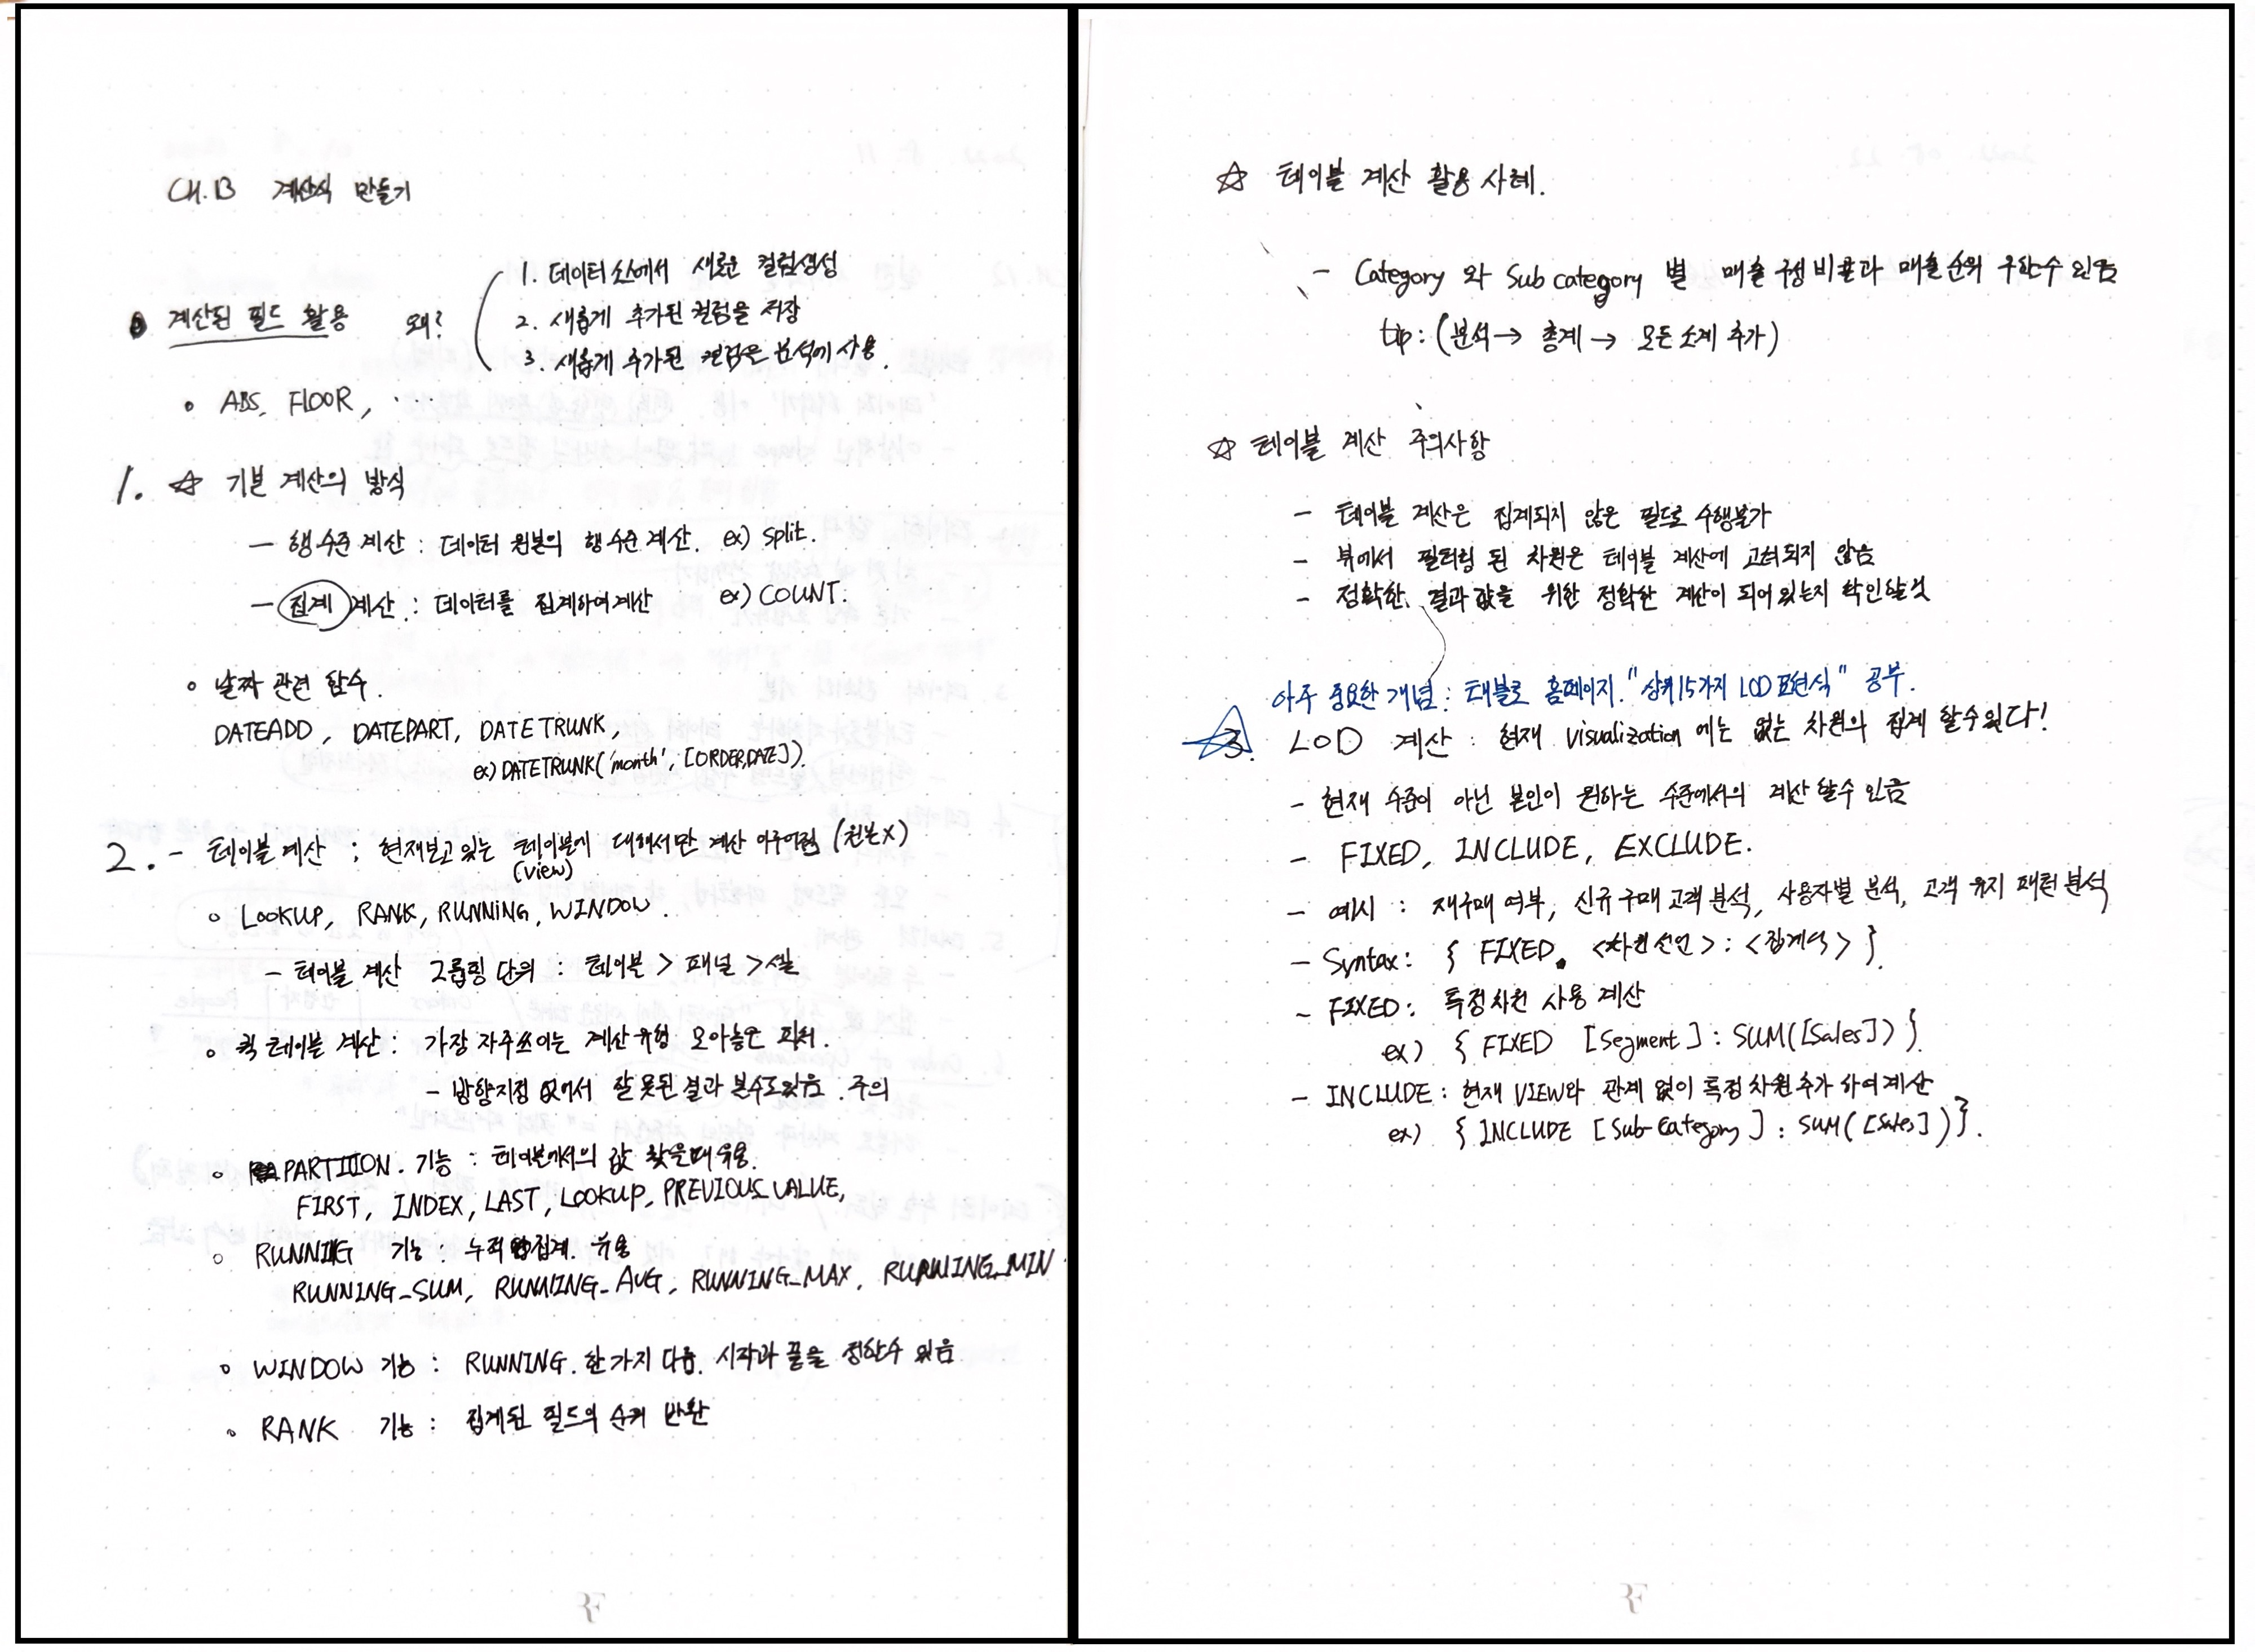 CH.13 계산식 만들기
계산된 필드 활용 왜?
1. 데이터 소스에서 새로운 컬럼생성
2. 새롭게 추가된 컬럼을 저장
3. 새롭게 추가된 컬럼은 분석에 사용.
ABS, FLOOR, ....
1. ☆ 기본 계산의 방식
- 행수준 계산 : 데이터 원본의 행 수준 계산. ex) split.
- 집계 계산 : 데이터를 집계하여 계산 ex) COUNT.
날짜 관련 함수.
DATEADD, DATEPART, DATETRUNK,
ex) DATETRUNK('month', [ORDER,DATE]).
2. - 테이블 계산 ; 현재보고있는 테이블에 대해서만 계산 이루어짐 (원본X)
(view)
LOOKUP, RANK, RUNNING, WINDOW.
- 테이블 계산 그룹핑 단위 : 테이블 > 패널 > 셀
퀵 테이블 계산 : 가장 자주쓰이는 계산유형 모아놓은 피쳐.
- 방향지정 없어서 잘못된 결과 볼수도있음. 주의
PARTITION. 기능 : 테이블에서의 값 찾을때 유용.
FIRST, INDEX, LAST, LOOKUP, PREVIOUS_VALUE,
RUNNING 기능 : 누적 집계. 유용
RUNNING_SUM, RUNNING_AVG, RUNNING_MAX, RUNNING_MIN.
WINDOW 기능 : RUNNING. 한가지 다름. 시작과 끝을 정할수 있음
RANK 기능 : 집계된 필드의 순위 반환
☆ 테이블 계산 활용 사례.
- Category 와 Sub category 별 매출 구성 비율과 매출순위 구할수 있음
tip : (분석→ 총계 → 모든 소계 추가)
☆ 테이블 계산 주의사항
- 테이블 계산은 집계되지 않은 필드로 수행불가
- 뷰에서 필터링 된 차원은 테이블 계산에 고려되지 않음
- 정확한 결과값을 위한 정확한 계산이 되어있는지 확인할것
아주 중요한 개념 : 태블로 홈페이지. "상위15가지 LOD 표현식" 공부.
☆ 3. LOD 계산 : 현재 visualization 에는 없는 차원의 집계 할수있다!
- 현재 수준이 아닌 본인이 원하는 수준에서의 계산 할수 있음
- FIXED, INCLUDE, EXCLUDE.
- 예시 : 재구매 여부, 신규구매 고객분석, 사용자별 분석, 고객 유지 패턴 분석
- Syntax : { FIXED. <차원선언> : <집계식> }.
- FIXED : 특정차원 사용 계산
ex) { FIXED [Segment] : SUM([Sales]) }.
- INCLUDE : 현재 VIEW와 관계 없이 특정 차원 추가 하여 계산
ex) { INCLUDE [Sub-Category] : SUM([Sales]) }.